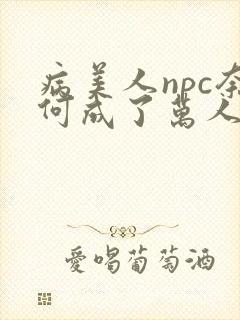 病美人npc奈
何成了萬人
愛喝葡萄酒